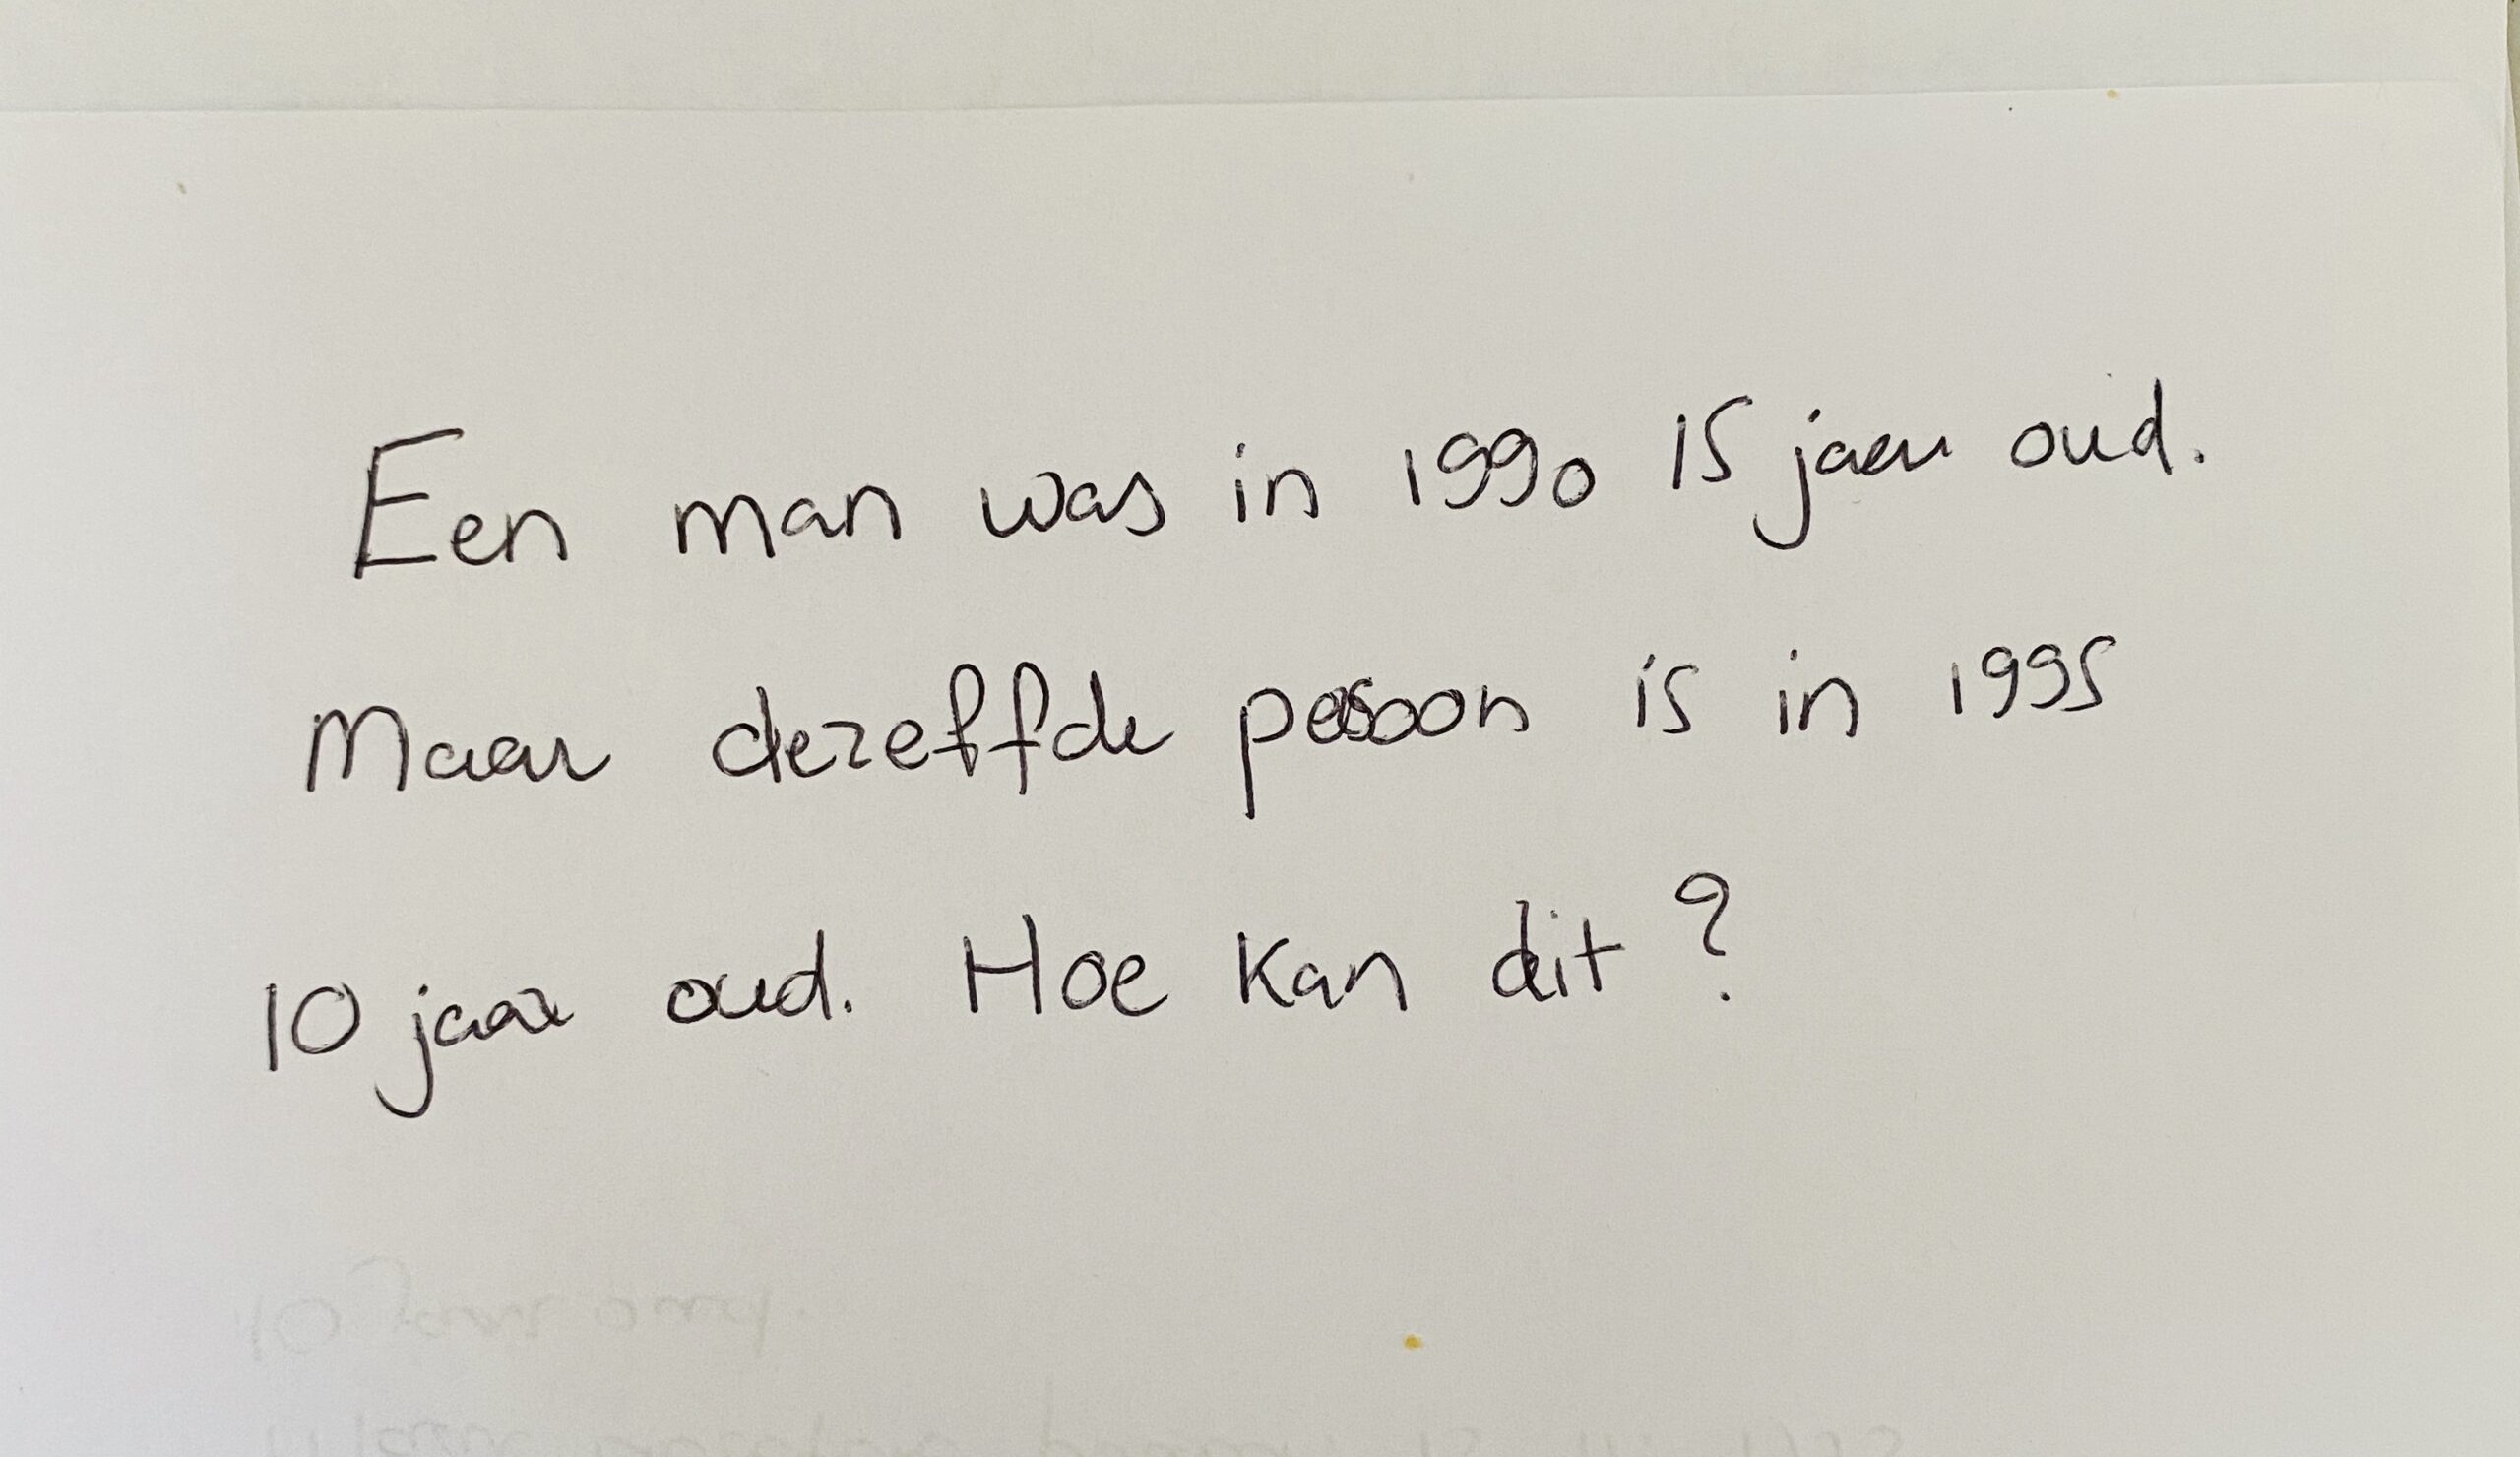 Een man was in 1990 15 jaar oud.
Maar dezelfde persoon is in 1995
10 jaar oud. Hoe kan dit?